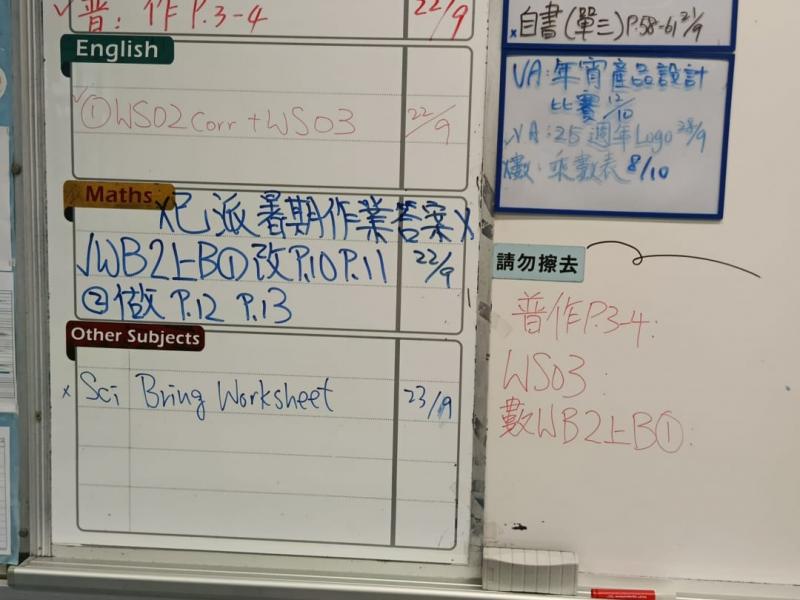 ✓普：作 P.3-4 22/9
English
✓①WS02 Corr + WS03 22/9
Maths
x已派暑期作業答案x
√WB2上B①改P.10 P.11 22/9
②做 P.12 P.13
Other Subjects
x Sci Bring Worksheet 23/9
x自書(單三)P.58-61 2/9
VA:年宵產品設計
比賽 12/10
√VA:25週年Logo 28/9
數:乘數表 8/10
請勿擦去
普作P.3-4:
WS03:
數WB2上B①: